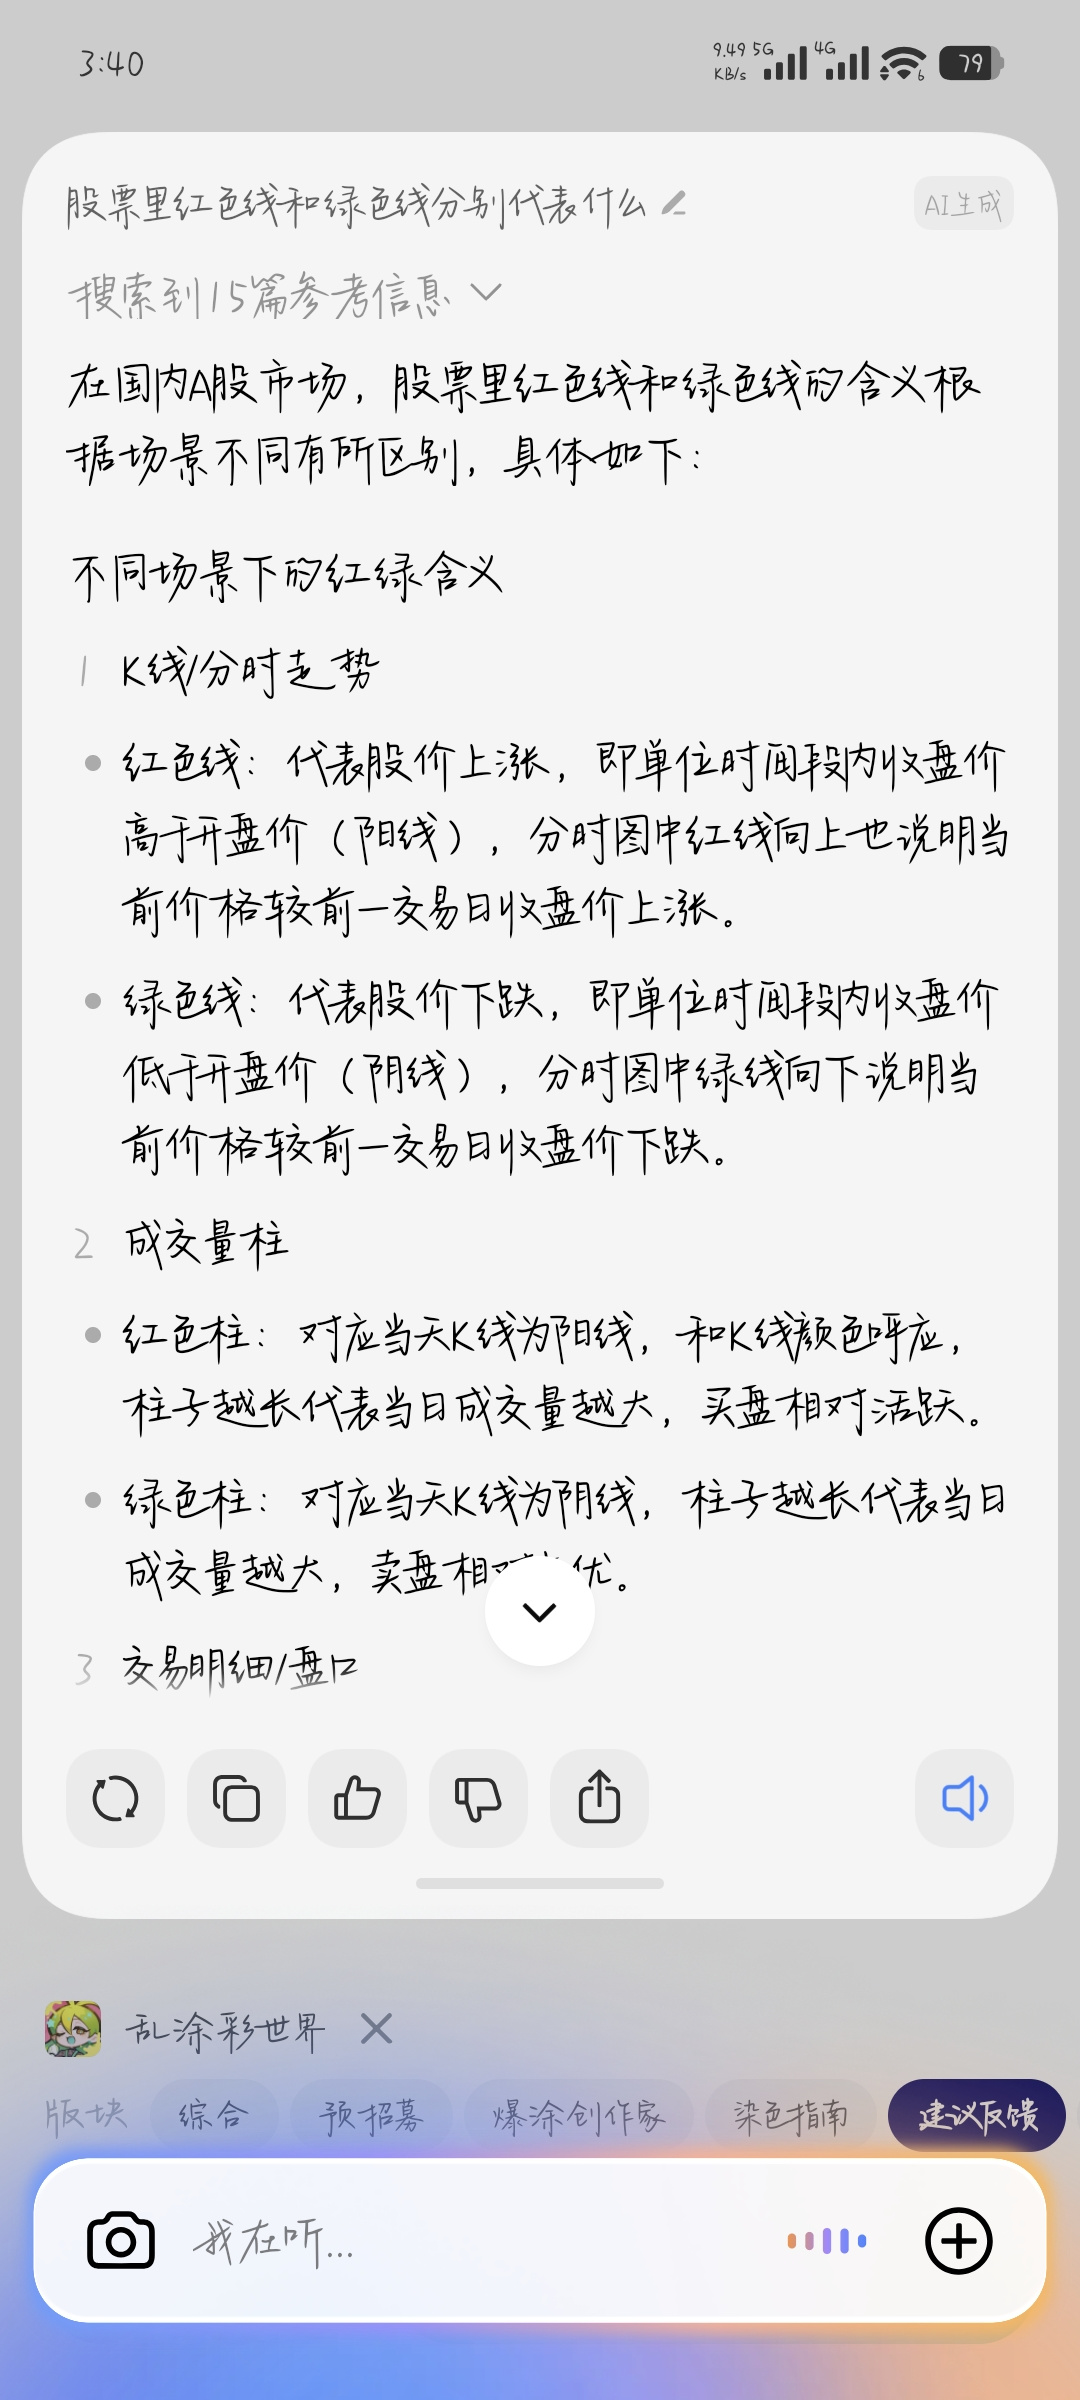 3:40
9.49 KB/s 5G 4G 6 79
股票里红色线和绿色线分别代表什么
AI生成
搜索到15篇参考信息
在国内A股市场，股票里红色线和绿色线的含义根
据场景不同有所区别，具体如下：
不同场景下的红绿含义
1 K线/分时走势
红色线：代表股价上涨，即单位时间段内收盘价
高于开盘价（阳线），分时图中红线向上也说明当
前价格较前一交易日收盘价上涨。
绿色线：代表股价下跌，即单位时间段内收盘价
低于开盘价（阴线），分时图中绿线向下说明当
前价格较前一交易日收盘价下跌。
2 成交量柱
红色柱：对应当天K线为阳线，和K线颜色呼应，
柱子越长代表当日成交量越大，买盘相对活跃。
绿色柱：对应当天K线为阴线，柱子越长代表当日
成交量越大，卖盘相对优。
3 交易明细/盘口
乱涂彩世界
版块 综合 预招募 爆涂创作家 染色指南 建议反馈
我在听...